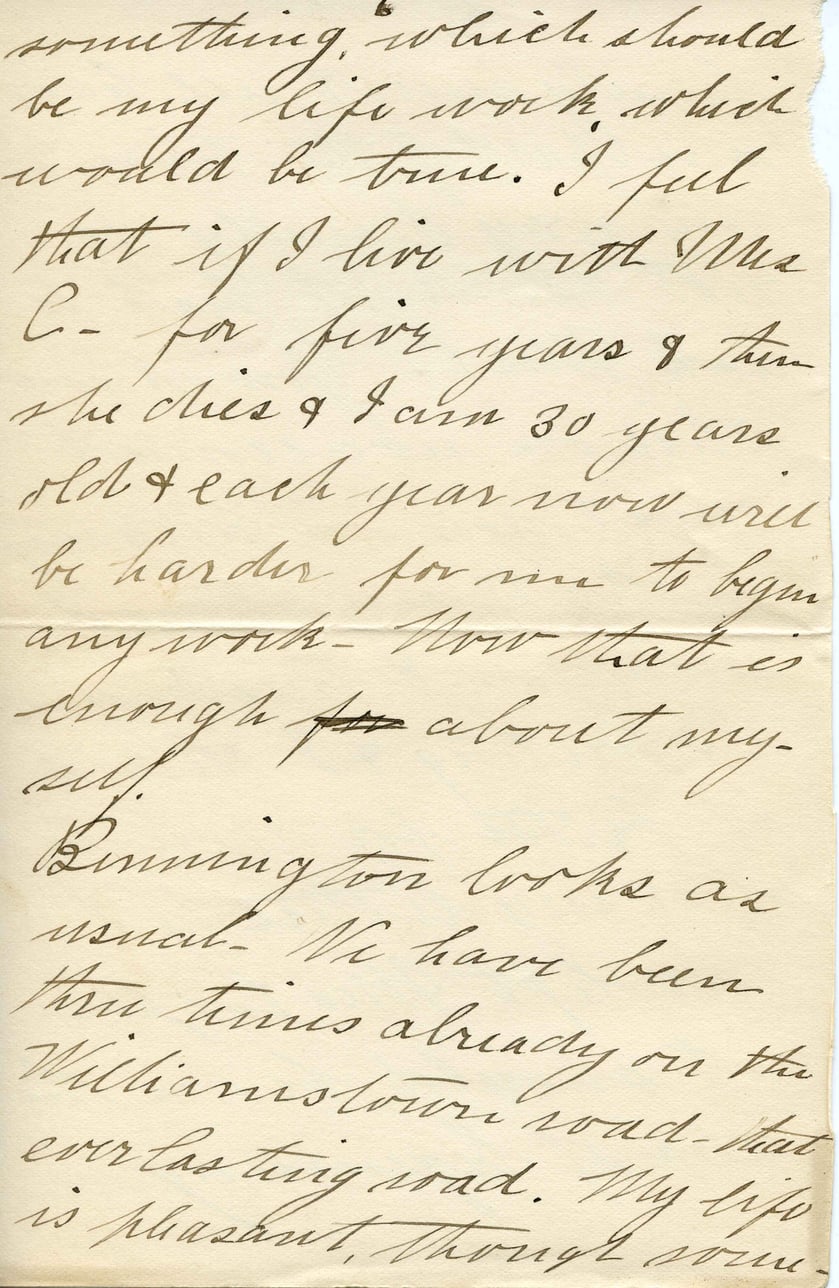 something, which should
be my life work, which
would be true. I feel
that if I live with Mrs
C- for five years & then
she dies & I am 30 years
old & each year now will
be harder for me to begin
any work- Now that is
enough for about my-
self.
Bennington looks as
usual- We have been
three times already on the
Williamstown road- that
everlasting road. My life
is pleasant, though some-